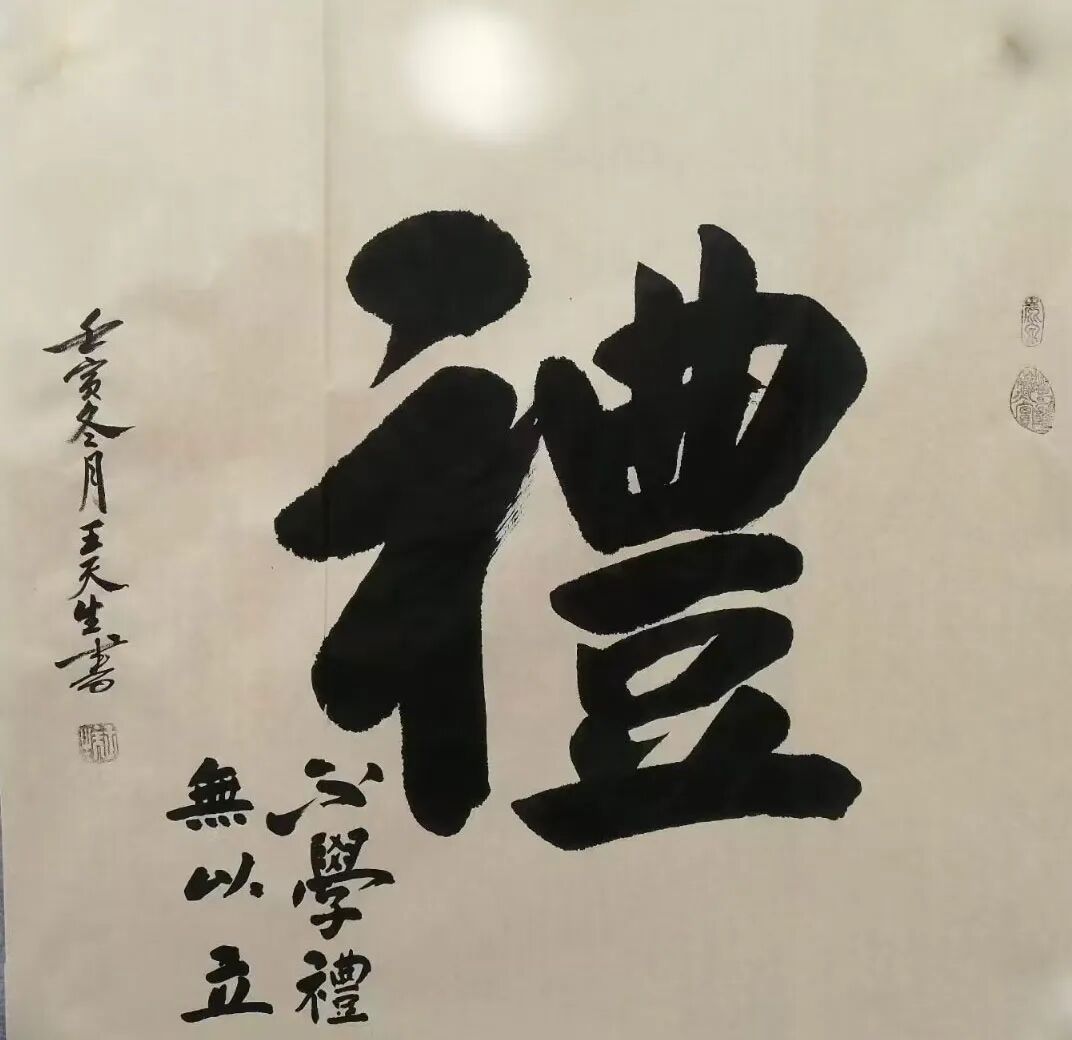 禮
不學禮
無以立
壬寅冬月王天生書